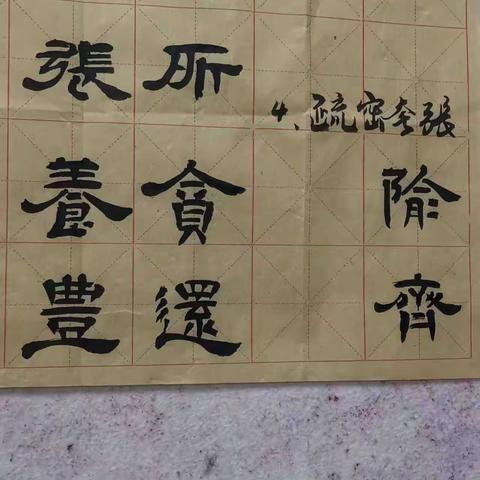 4、疏密夸張
隃齊
所貪還
張養豊